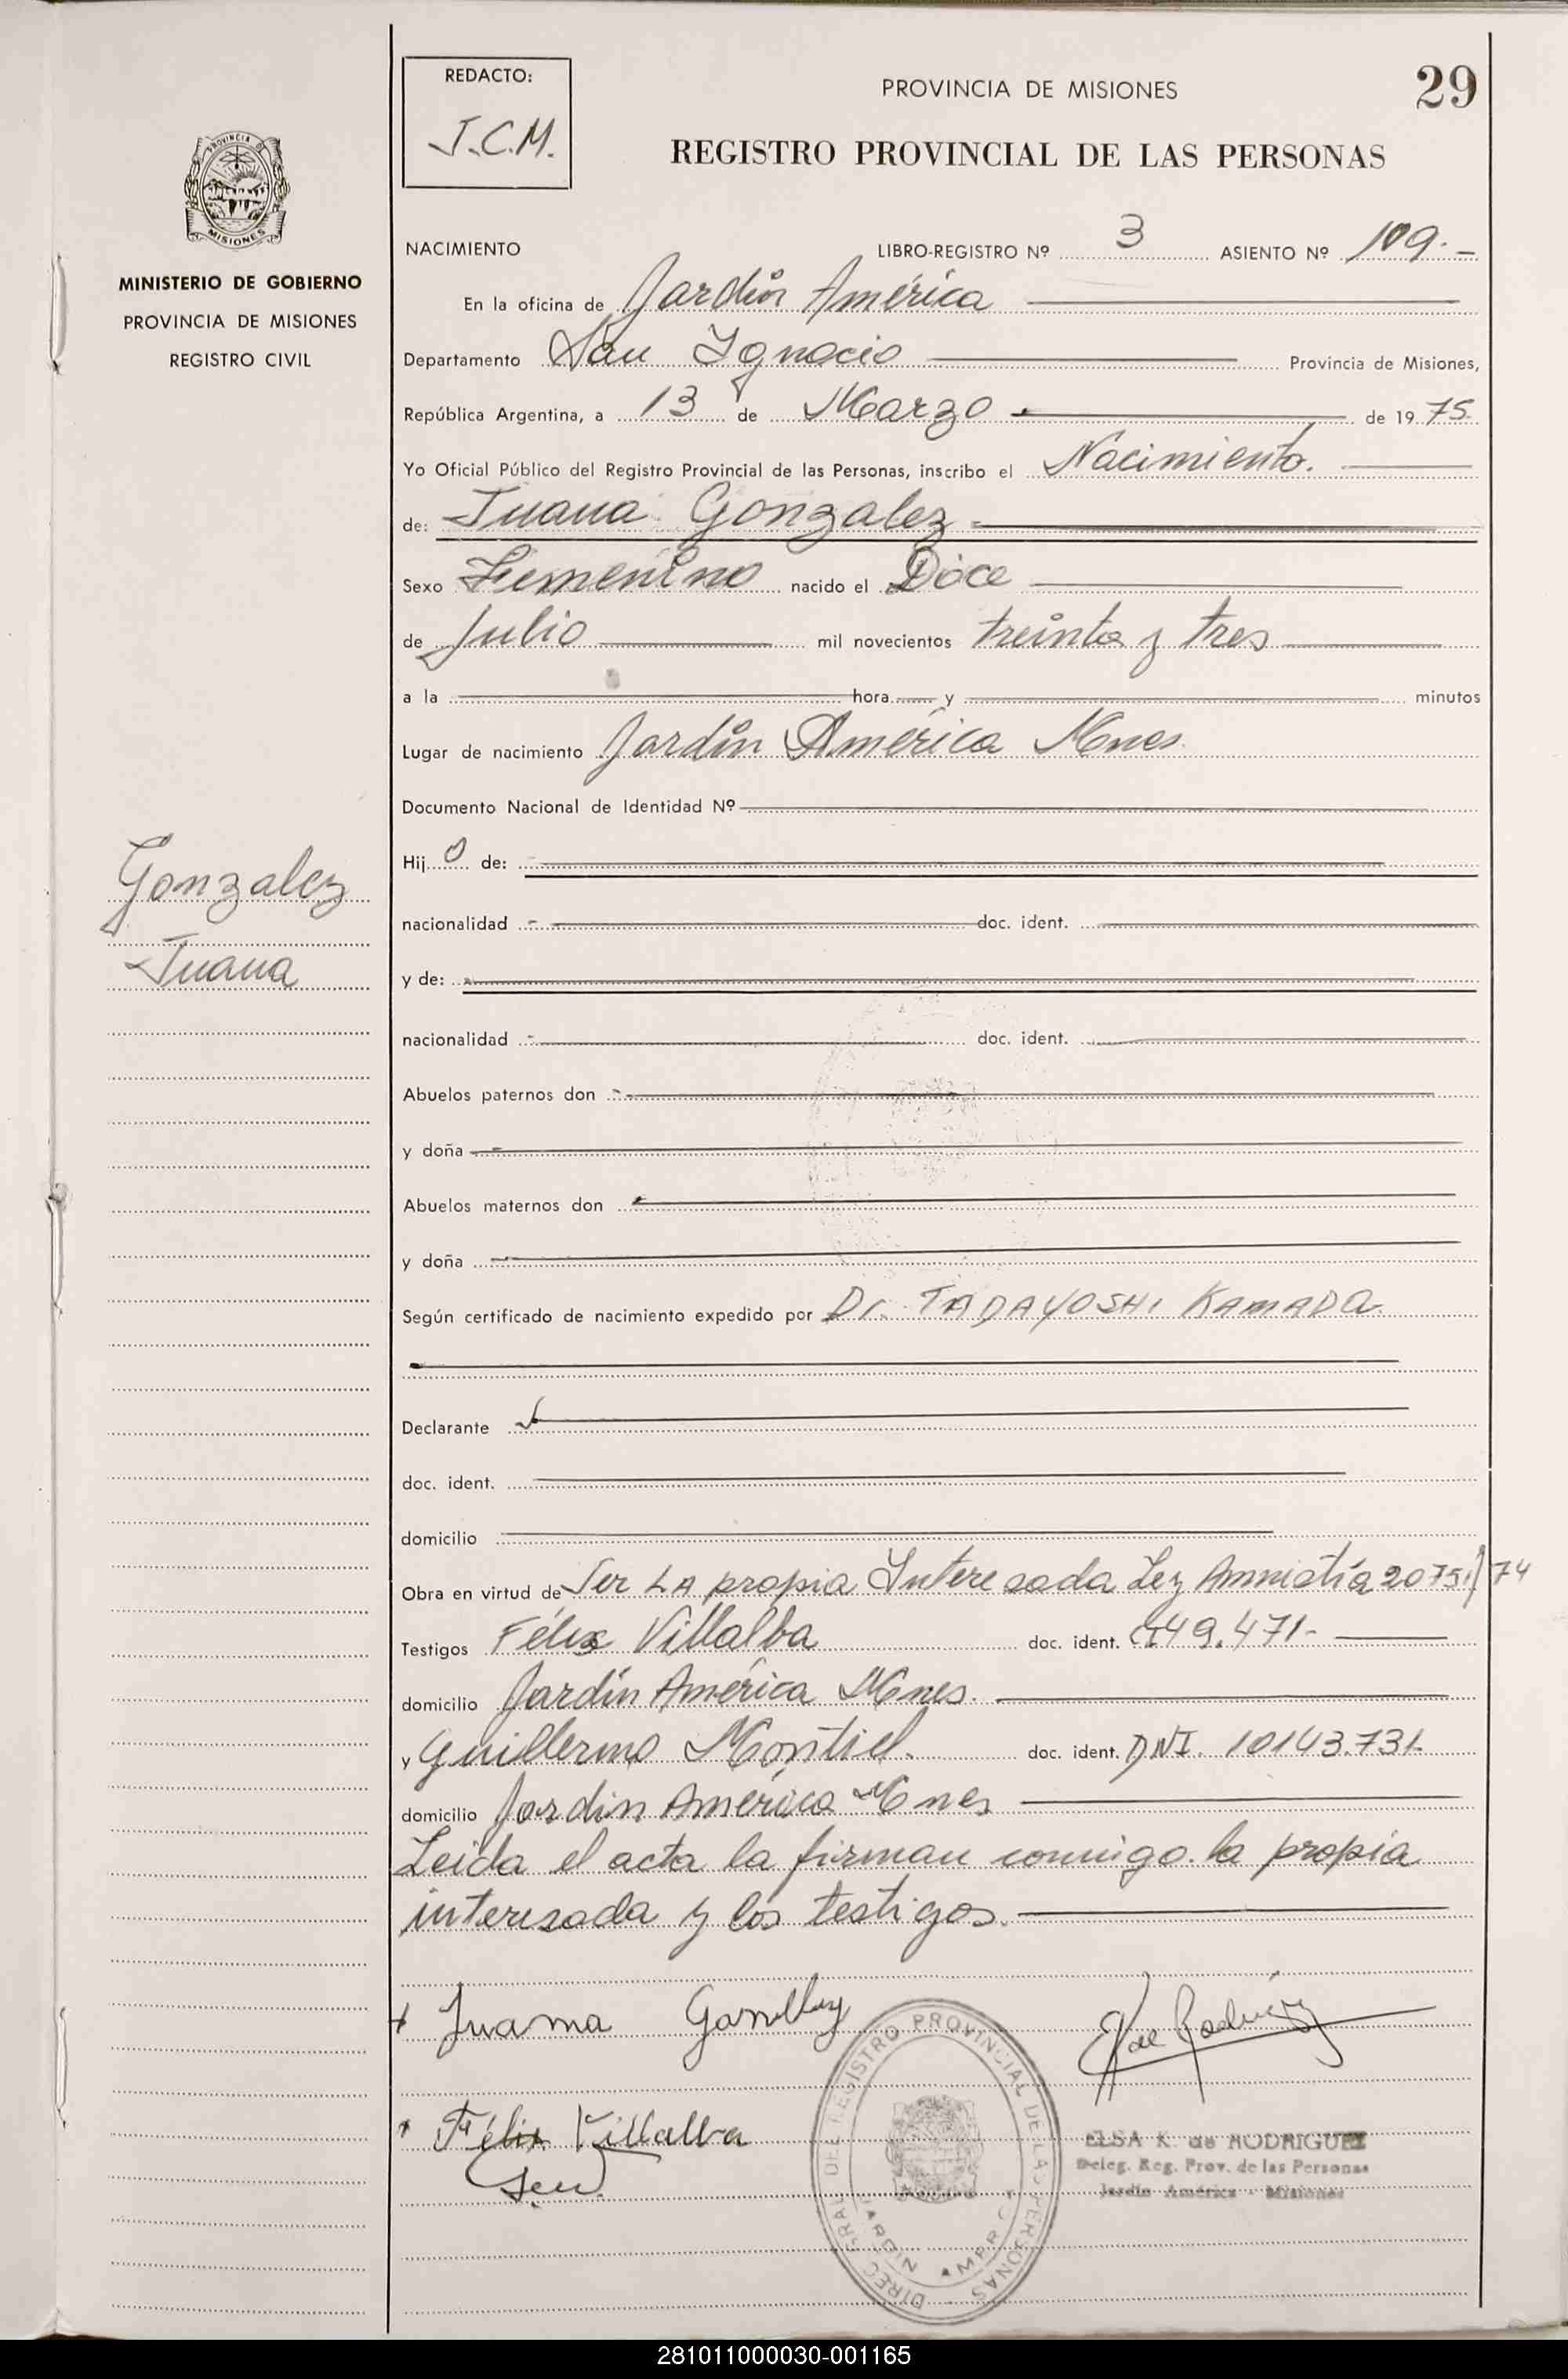 REDACTO:
J.C.M.
PROVINCIA DE MISIONES
29
REGISTRO PROVINCIAL DE LAS PERSONAS
PROVINCIA DE
MISIONES
MINISTERIO DE GOBIERNO
PROVINCIA DE MISIONES
REGISTRO CIVIL
NACIMIENTO LIBRO-REGISTRO Nº 3 ASIENTO Nº 109.-
En la oficina de Jardín América
Departamento San Ignacio Provincia de Misiones,
República Argentina, a 13 de Marzo de 1975.
Yo Oficial Público del Registro Provincial de las Personas, inscribo el Nacimiento.
de: Juana Gonzalez
Sexo Femenino nacido el Doce
de Julio mil novecientos treinta y tres
a la hora y minutos
Lugar de nacimiento Jardín América Mnes.
Documento Nacional de Identidad Nº
Hijo de:
Gonzalez
Juana
nacionalidad doc. ident.
y de:
nacionalidad doc. ident.
Abuelos paternos don
y doña
Abuelos maternos don
y doña
Según certificado de nacimiento expedido por Dr. TADAYOSHI KAMADA
Declarante
doc. ident.
domicilio
Obra en virtud de Ser LA propia Interesada Ley Amnistía 20751/74
Testigos Félix Villalba doc. ident. 449.471-
domicilio Jardín América Mnes.
y Guillermo Montiel. doc. ident. DNI. 10143.731-
domicilio Jardin América Mnes
Leida el acta la firman conmigo la propia
interesada y los testigos.
Juama
Félix Villalba
DIREC. GRAL. DEL REGISTRO PROVINCIAL DE LAS PERSONAS
JARDIN AMERICA
ELSA K. de RODRIGUEZ
Deleg. Reg. Prov. de las Personas
Jardín América - Misiones
281011000030-001165